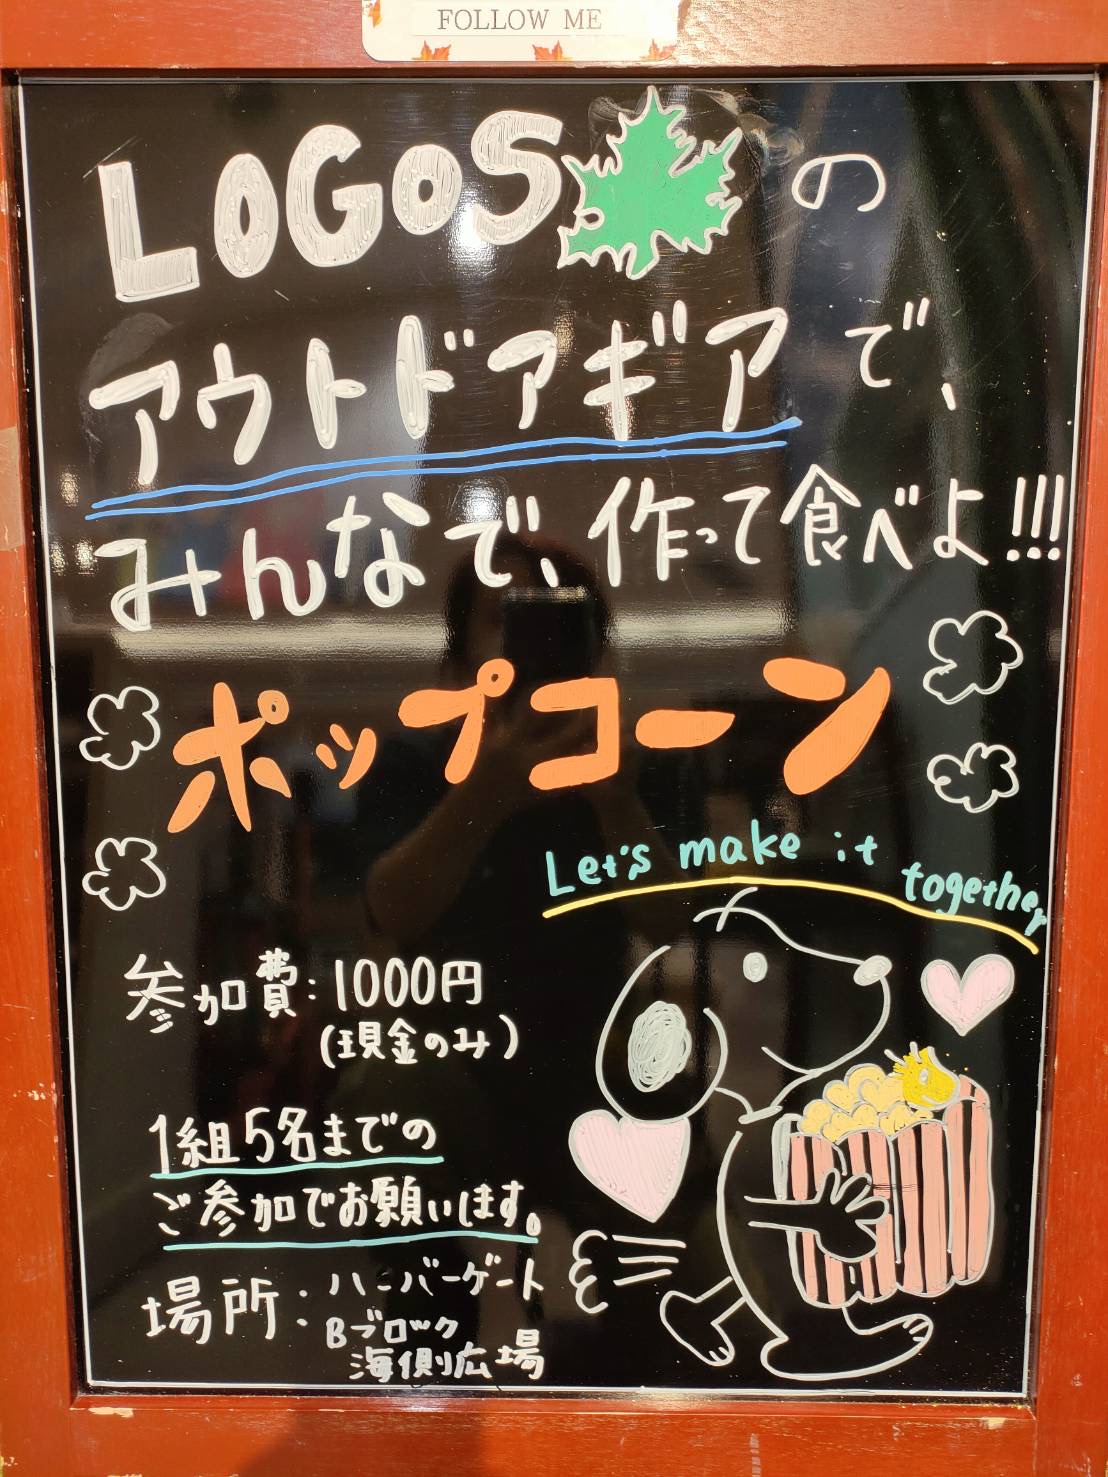 FOLLOW ME
LOGOS の
アウトドアギアで、
みんなで、作って食べよ!!!
ポップコーン
Let's make it together
参加費：1000円
(現金のみ)
1組5名までの
ご参加でお願いします。
場所：ハーバーゲート
Bブロック
海側広場